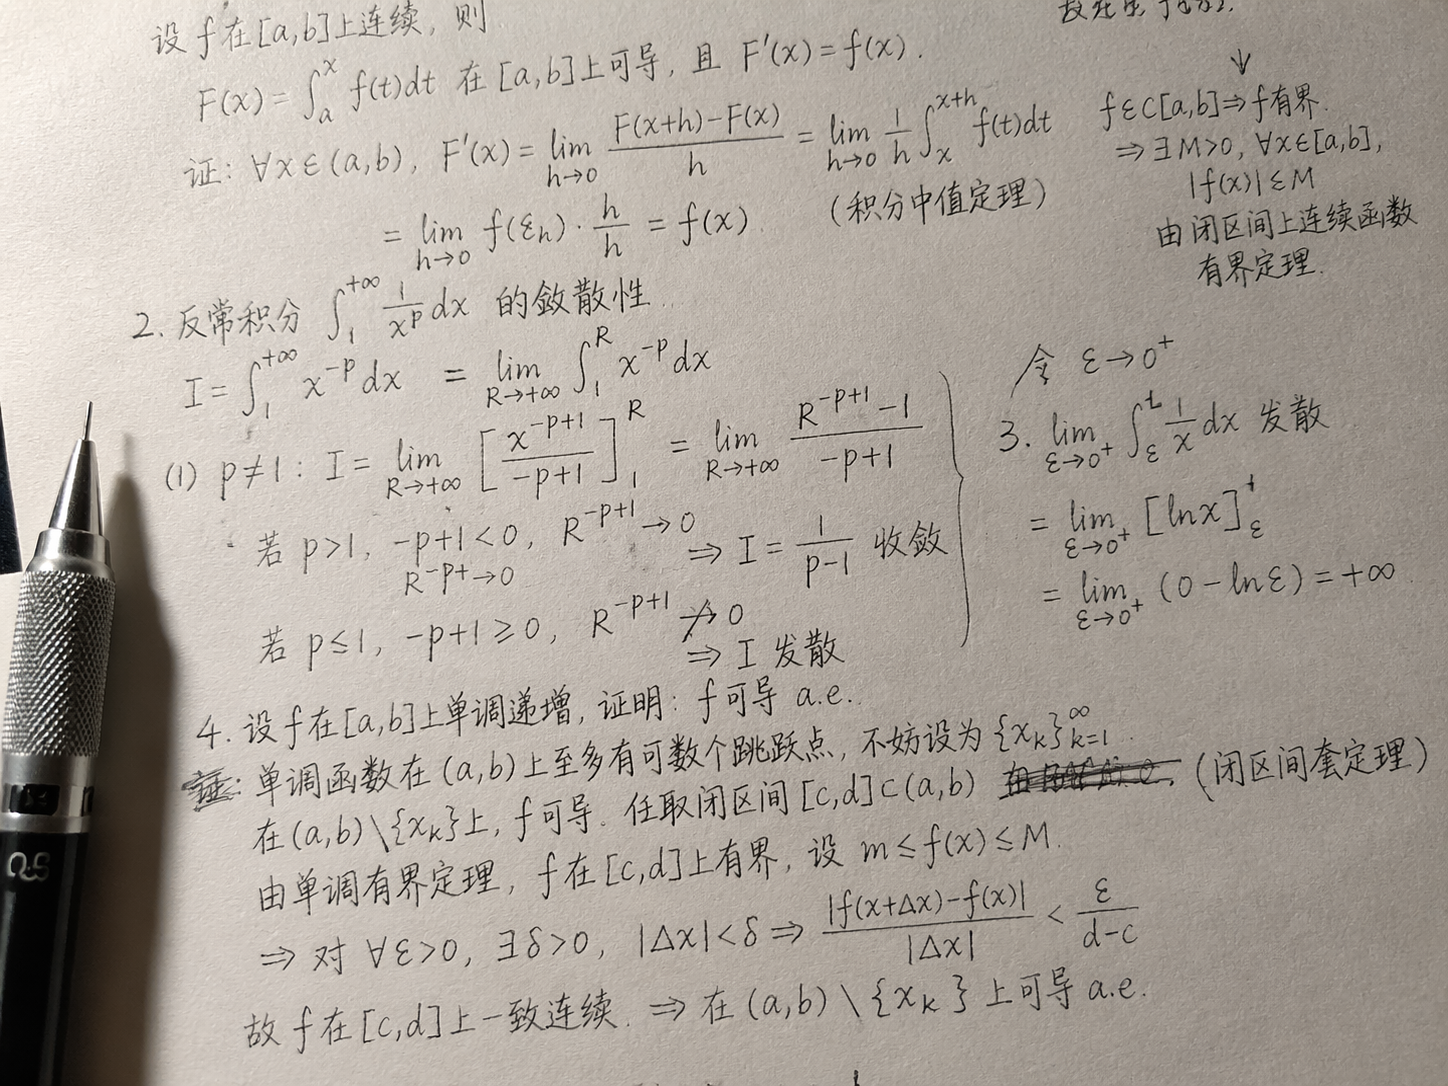 设 f 在 [a,b] 上连续, 则
F(x) = ∫_a^x f(t)dt 在 [a,b] 上可导, 且 F'(x) = f(x).
证: ∀x ∈ (a,b), F'(x) = lim_{h→0} (F(x+h)-F(x))/h = lim_{h→0} 1/h ∫_x^{x+h} f(t)dt
= lim_{h→0} f(ε_h) · h/h = f(x) (积分中值定理)
↓
f∈C[a,b] ⇒ f有界.
⇒ ∃M>0, ∀x∈[a,b],
|f(x)| ≤ M
由闭区间上连续函数
有界定理.
2. 反常积分 ∫_1^{+∞} 1/x^p dx 的敛散性
I = ∫_1^{+∞} x^{-p} dx = lim_{R→+∞} ∫_1^R x^{-p} dx
(1) p≠1: I = lim_{R→+∞} [x^{-p+1}/(-p+1)]_1^R = lim_{R→+∞} (R^{-p+1}-1)/(-p+1)
若 p>1, -p+1<0, R^{-p+1}→0 ⇒ I = 1/(p-1) 收敛
R^{-p+}→0
若 p≤1, -p+1≥0, R^{-p+1} ↛ 0
⇒ I 发散
令 ε→0⁺
3. lim_{ε→0⁺} ∫_ε^t 1/x dx 发散
= lim_{ε→0⁺} [lnx]_ε^t
= lim_{ε→0⁺} (0-lnε) = +∞
4. 设 f 在 [a,b] 上单调递增, 证明: f 可导 a.e.
证: 单调函数在 (a,b) 上至多有可数个跳跃点, 不妨设为 {x_k}_{k=1}^∞
在 (a,b)\{x_k} 上, f 可导. 任取闭区间 [c,d]⊂(a,b) (闭区间套定理)
由单调有界定理, f 在 [c,d] 上有界, 设 m≤f(x)≤M.
⇒ 对 ∀ε>0, ∃δ>0, |Δx|<δ ⇒ |f(x+Δx)-f(x)|/|Δx| < ε/(d-c)
故 f 在 [c,d] 上一致连续. ⇒ 在 (a,b)\{x_k} 上可导 a.e.